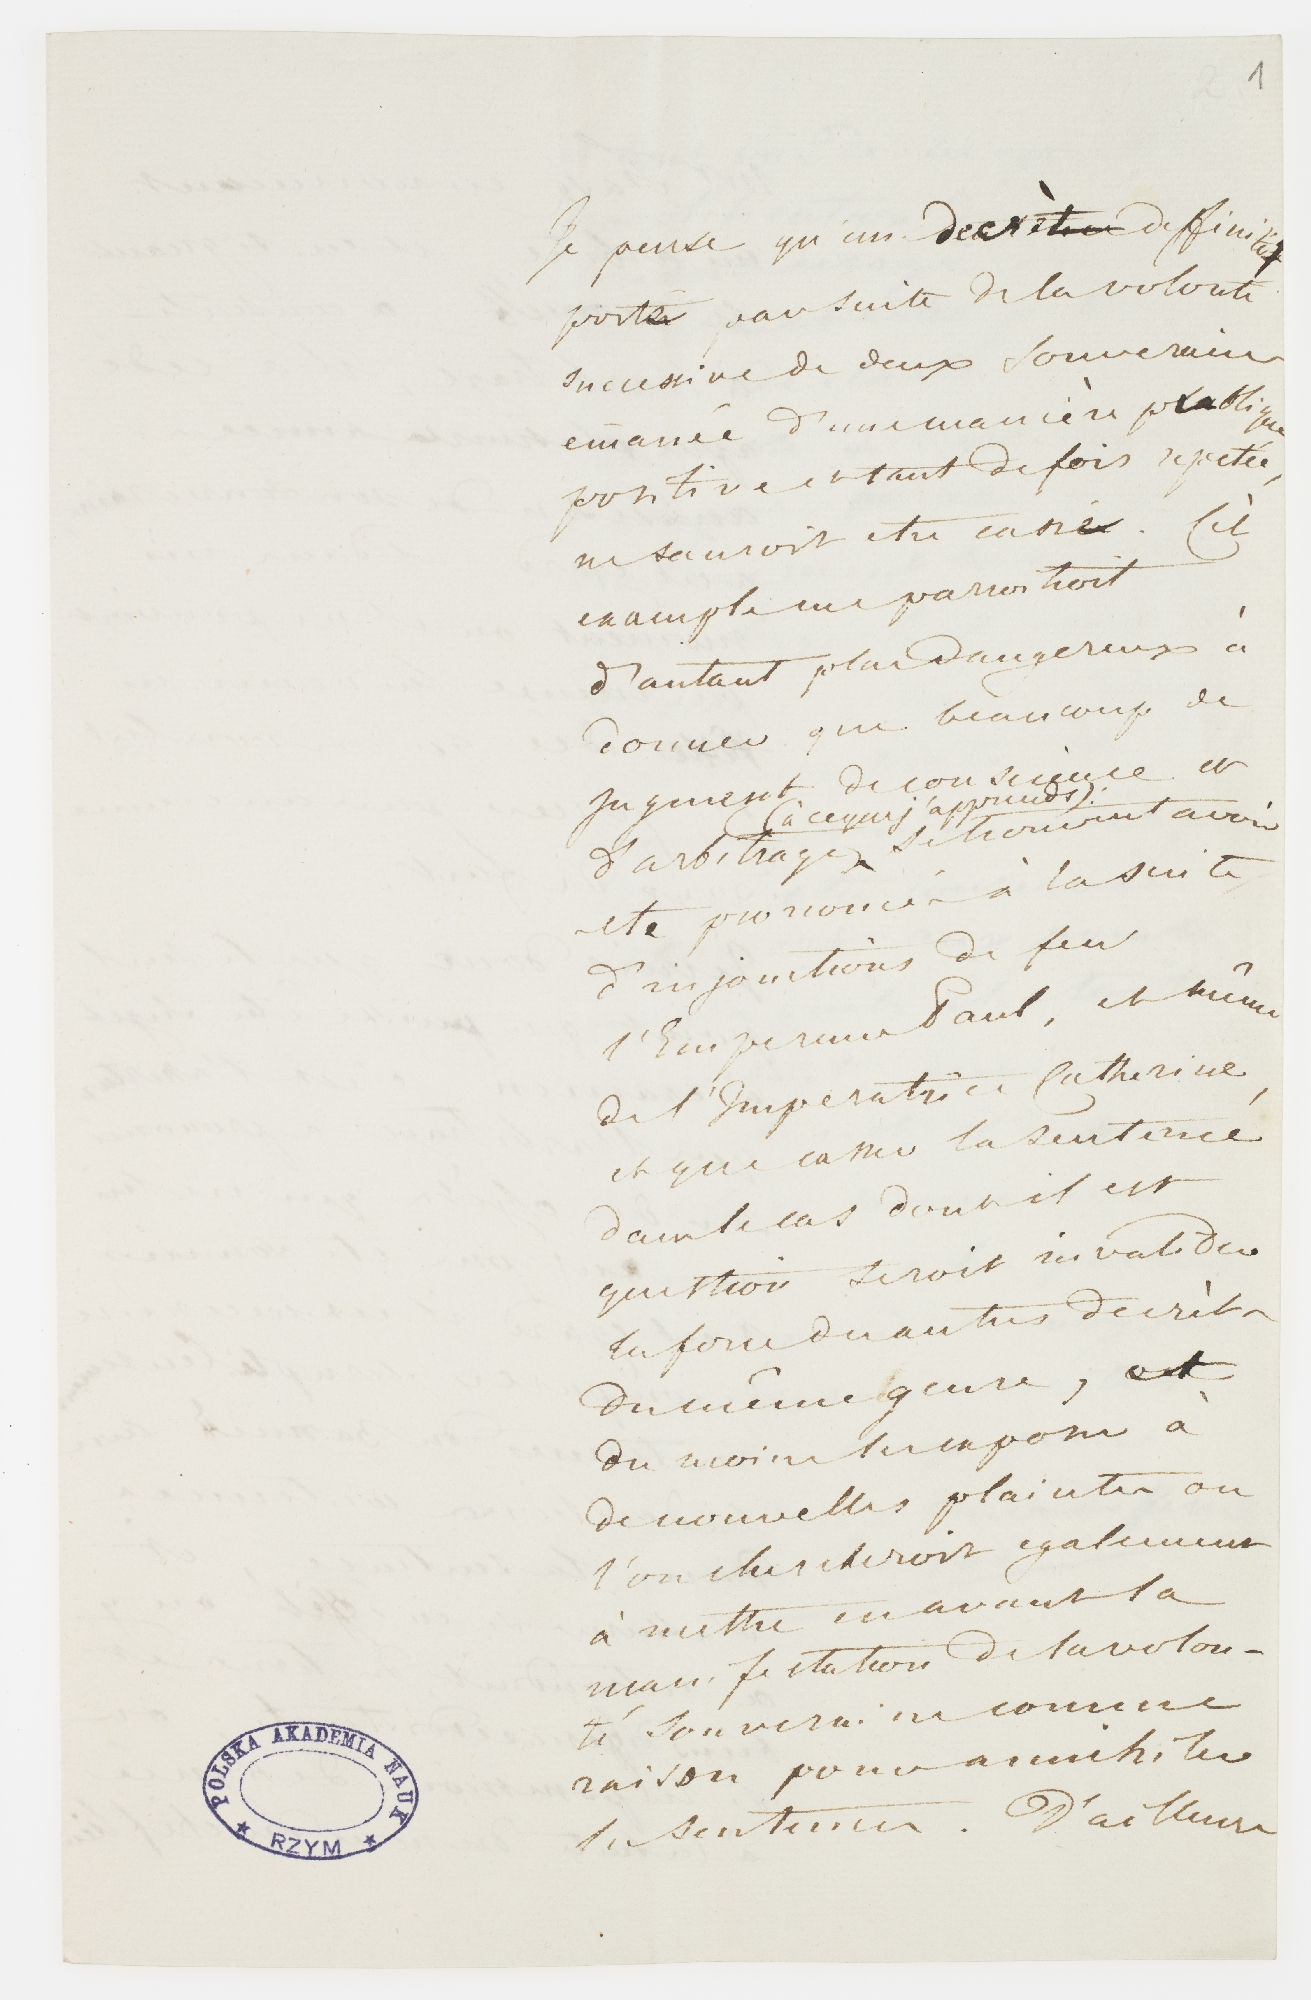 1
Je pense qu'un decrèt deffinitif
porté par suite de la volonté
successive de deux Souverains
émanée d'une manière publique
positive et tant de fois repetée,
ne sauroit etre cassé. Cet
exemple me paroitroit
d'autant plus dangereux à
donner que beaucoup de
jugement de conscience et
(à ce que j'apprends)
d'arbitrage, se trouvent avoir
eté prononcés à la suite
d'injonctions de feu
l'Empereur Paul, et même
de l'Imperatrice Catherine,
et que casser la sentence
dans le cas dont il est
question seroit invalider
la force des autres decrèts
du même genre, et
du moins les exposer à
de nouvelles plaintes ou
l'on chercheroit egalement
à mettre en avant la
manifestation de la volon-
té souveraine comme
raison pour annihiler
les sentences. D'ailleurs
POLSKA AKADEMIA NAUK
RZYM